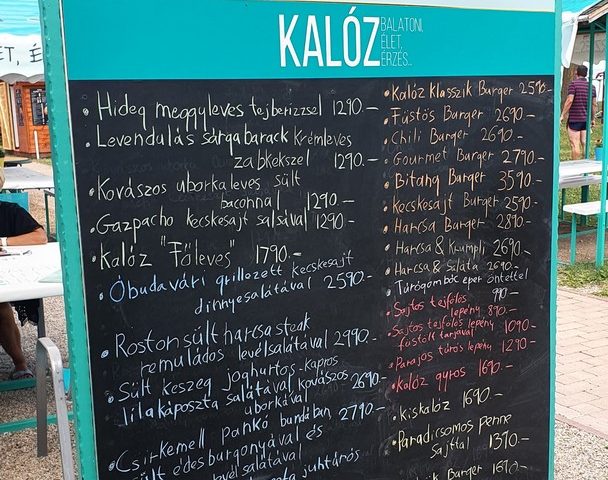 KALÓZ
BALATONI,
ÉLET,
ÉRZÉS..
• Hideg meggyleves tejberizzsel 1290.-
• Levendulás sárgabarack Krémleves
zabkekszel 1290.-
• Kovászos uborkaleves sült
baconnal 1290.-
• Gazpacho kecskesajt salsával 1290.-
• Kalóz "Főleves" 1790.-
• Óbudavári grillozett kecskesajt
dinnyesalátával 2590.-
• Roston sült harcsa steak
remuládos levélsalátával 2990.-
• Sült keszeg joghurtos-kapros
lilakáposzta salátával kovászos 2690.-
uborkával
• Csirkemell Pankó bundában 2790.-
sült édesburgonyával és
levélsalátával
juhtúrós
• Kalóz Klasszik Burger 2590.-
• Füstös Burger 2690.-
• Chili Burger 2690.-
• Gourmet Burger 2790.-
• Bitang Burger 3590.-
• Kecskesajt Burger 2590.-
• Harcsa Burger 2890.-
• Harcsa & Krumpli 2690.-
• Harcsa & Saláta 2690.-
• Túrógombóc eper öntettel
990.-
• Sajtos tejfölös
lepény 890.-
• Sajtos tejfölös lepény
füstölt tarjával 1090.-
• Parajos túrós lepény 1290.-
• Kalóz gyros 1690.-
• Kiskalóz 1690.-
• Paradicsomos Penne
Sajttal 1390.-
Burger 1690.-